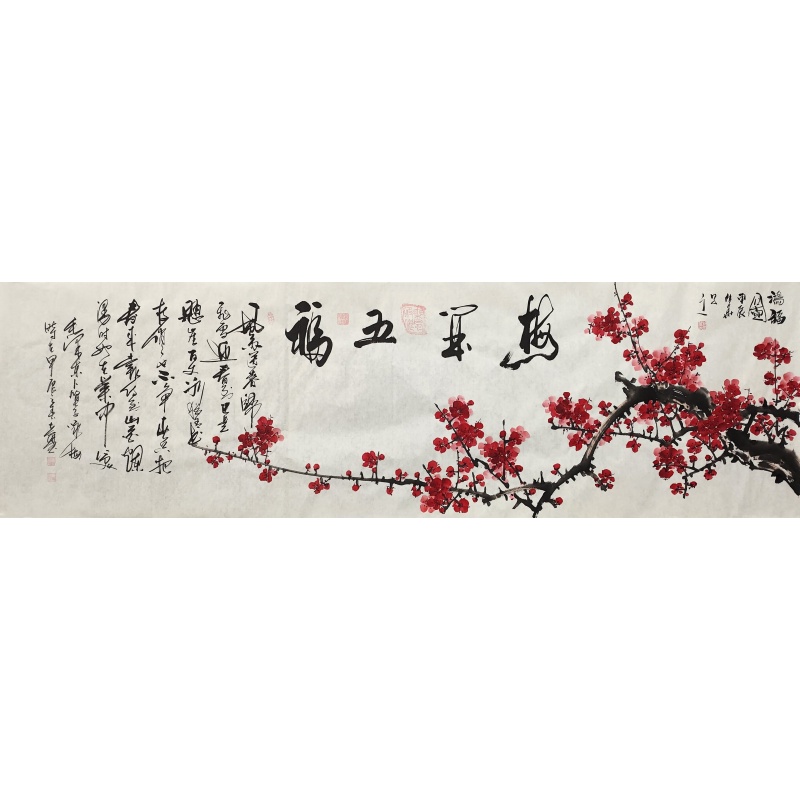 甲辰
梅開五福
風雨送春歸
飛雪迎春到已是
懸崖百丈冰猶有花
枝俏俏也不爭春只把
春來報待到山花爛
漫時她在叢中笑
毛澤東卜算子詠梅
時在甲辰